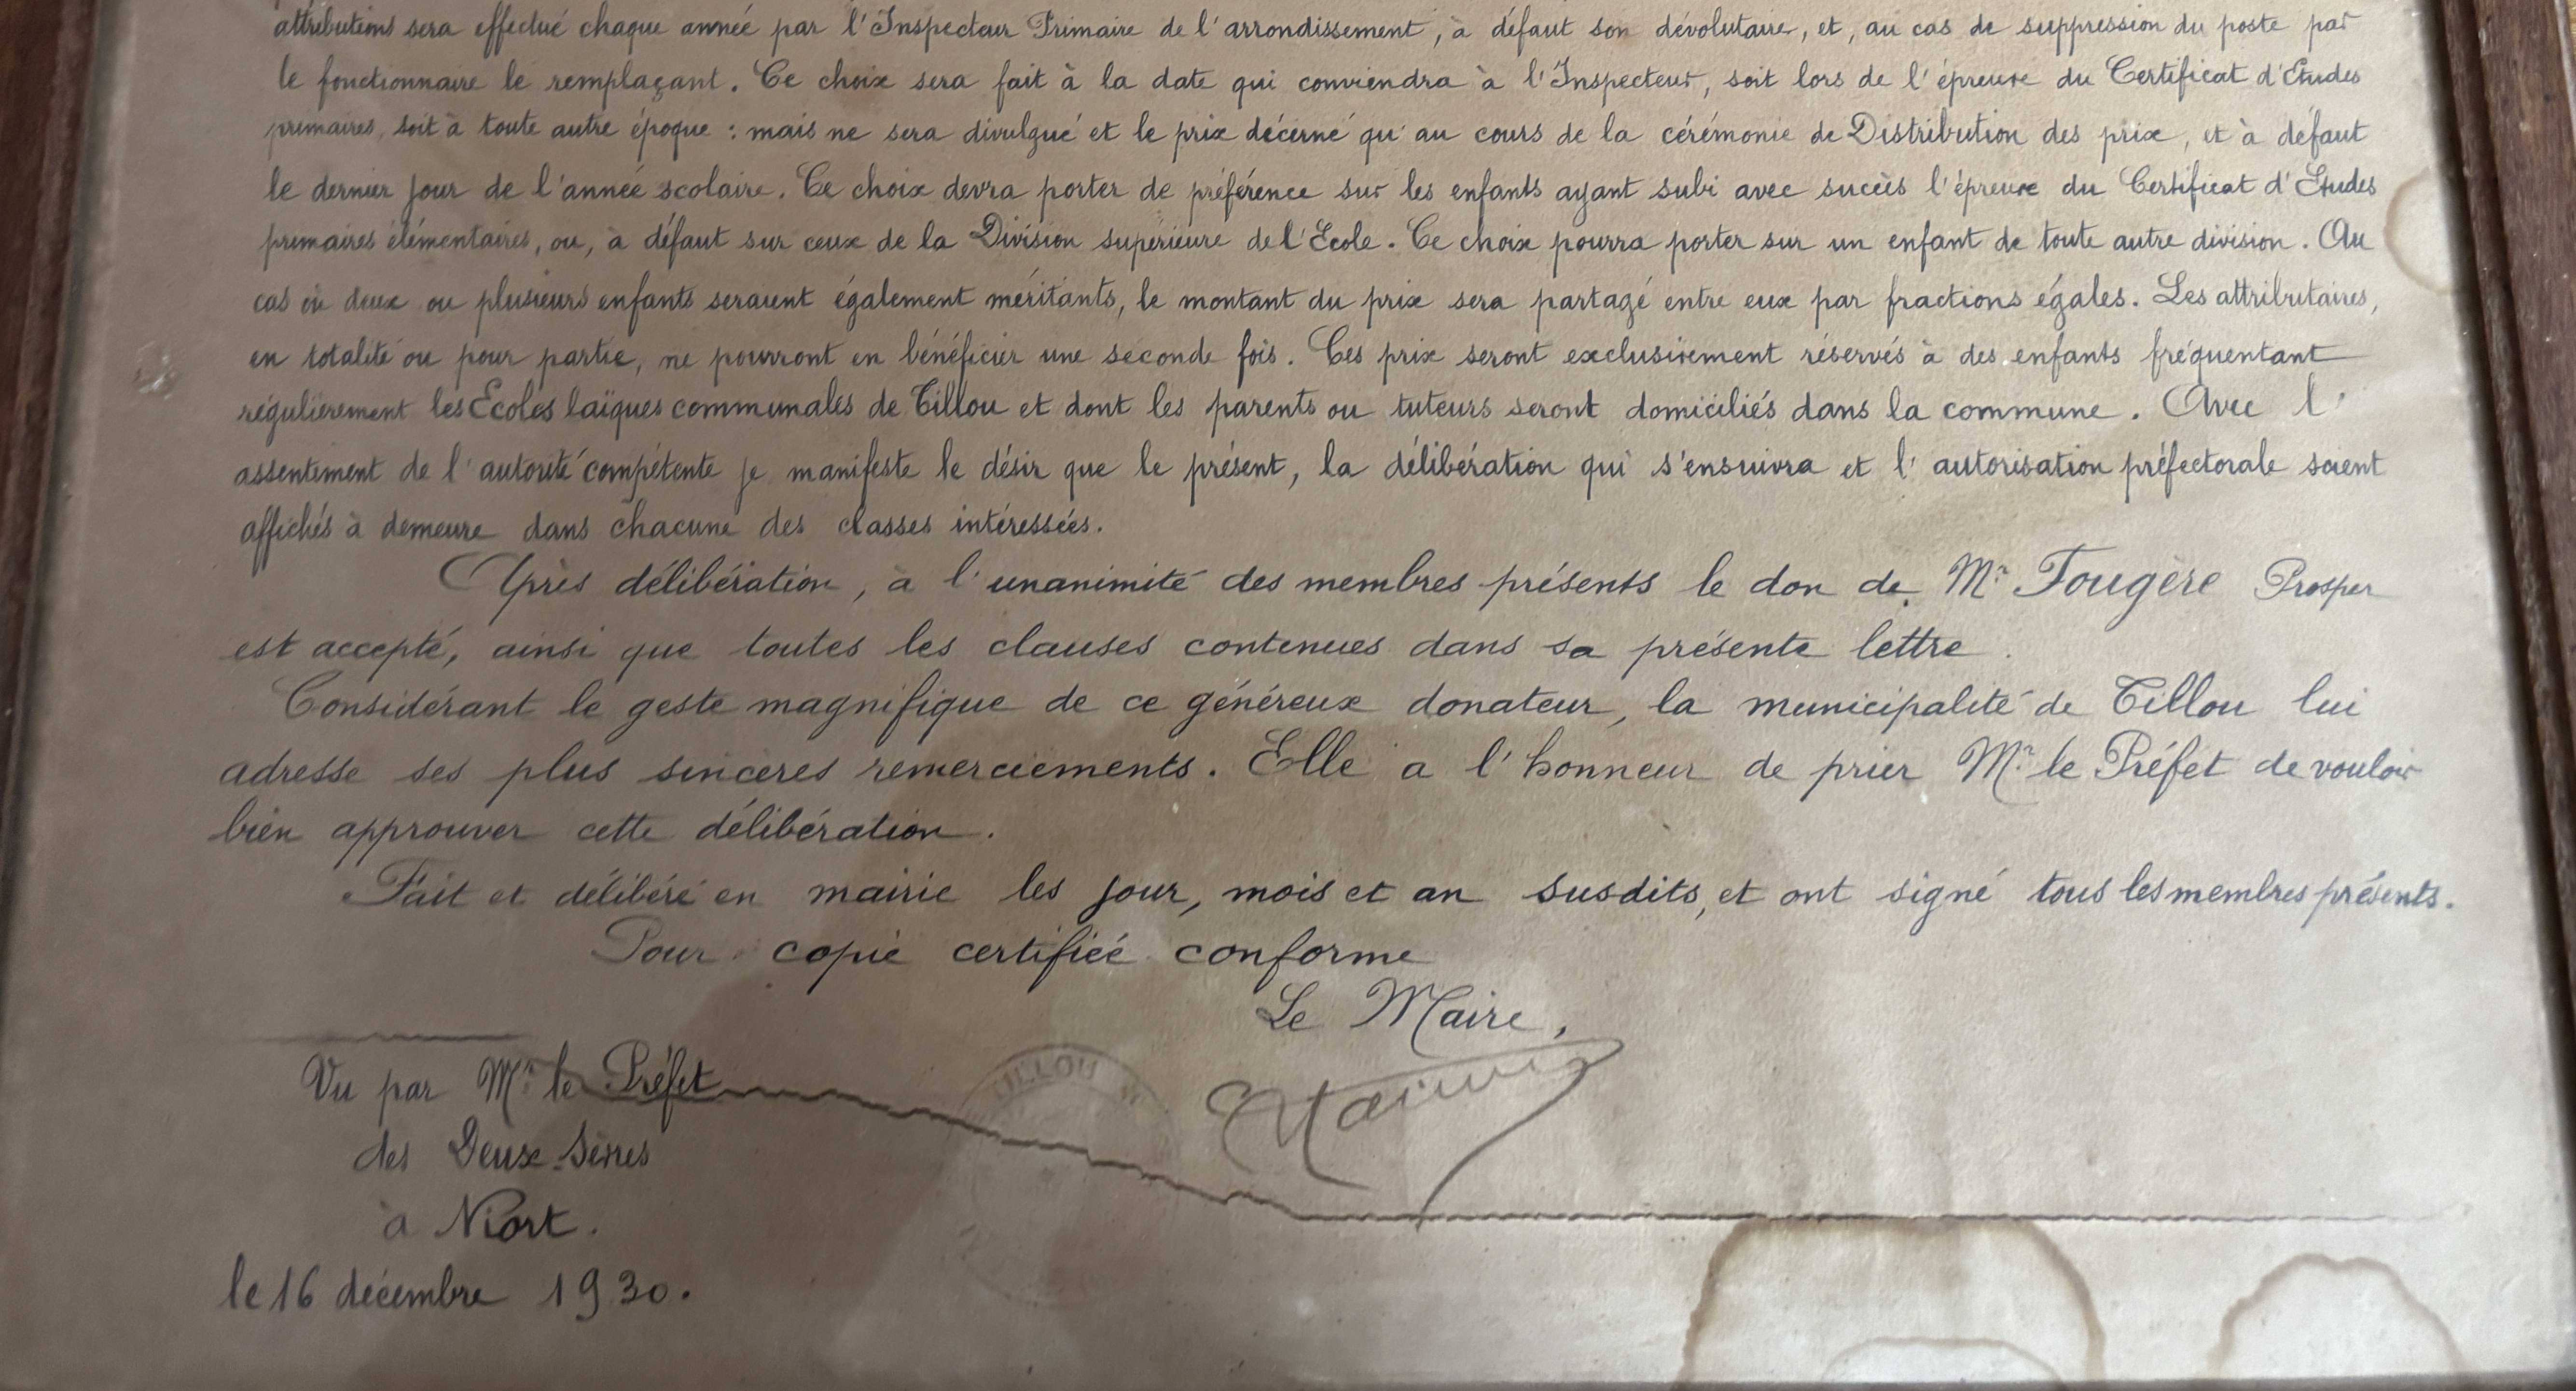 attributions sera effectué chaque année par l'Inspecteur Primaire de l'arrondissement, à défaut son dévolutaire, et, au cas de suppression du poste par
le fonctionnaire le remplaçant. Ce choix sera fait à la date qui conviendra à l'Inspecteur, soit lors de l'épreuve du Certificat d'Etudes
primaires, soit à toute autre époque : mais ne sera divulgué et le prix décerné qu'au cours de la cérémonie de Distribution des prix, et à défaut
le dernier jour de l'année scolaire. Ce choix devra porter de préférence sur les enfants ayant subi avec succès l'épreuve du Certificat d'Etudes
primaires élémentaires, ou, à défaut sur ceux de la Division supérieure de l'Ecole. Ce choix pourra porter sur un enfant de toute autre division. Au
cas où deux ou plusieurs enfants seraient également méritants, le montant du prix sera partagé entre eux par fractions égales. Les attributaires,
en totalité ou pour partie, ne pourront en bénéficier une seconde fois. Ces prix seront exclusivement réservés à des enfants fréquentant
régulièrement les Ecoles laïques communales de Tillou et dont les parents ou tuteurs seront domiciliés dans la commune. Avec l'
assentiment de l'autorité compétente je manifeste le désir que le présent, la délibération qui s'ensuivra et l'autorisation préfectorale soient
affichés à demeure dans chacune des classes intéressées.
Après délibération, à l'unanimité des membres présents le don de Mr Fougère Prosper
est accepté, ainsi que toutes les clauses contenues dans sa présente lettre.
Considérant le geste magnifique de ce généreux donateur, la municipalité de Tillou lui
adresse ses plus sincères remerciements. Elle a l'honneur de prier Mr. le Préfet de vouloir
bien approuver cette délibération.
Fait et délibéré en mairie les jour, mois et an susdits, et ont signé tous les membres présents.
Pour copie certifiée conforme
Le Maire,
TILLOU
Vu par Mr. le Préfet
des Deux-Sèvres
à Niort.
le 16 décembre 1930.